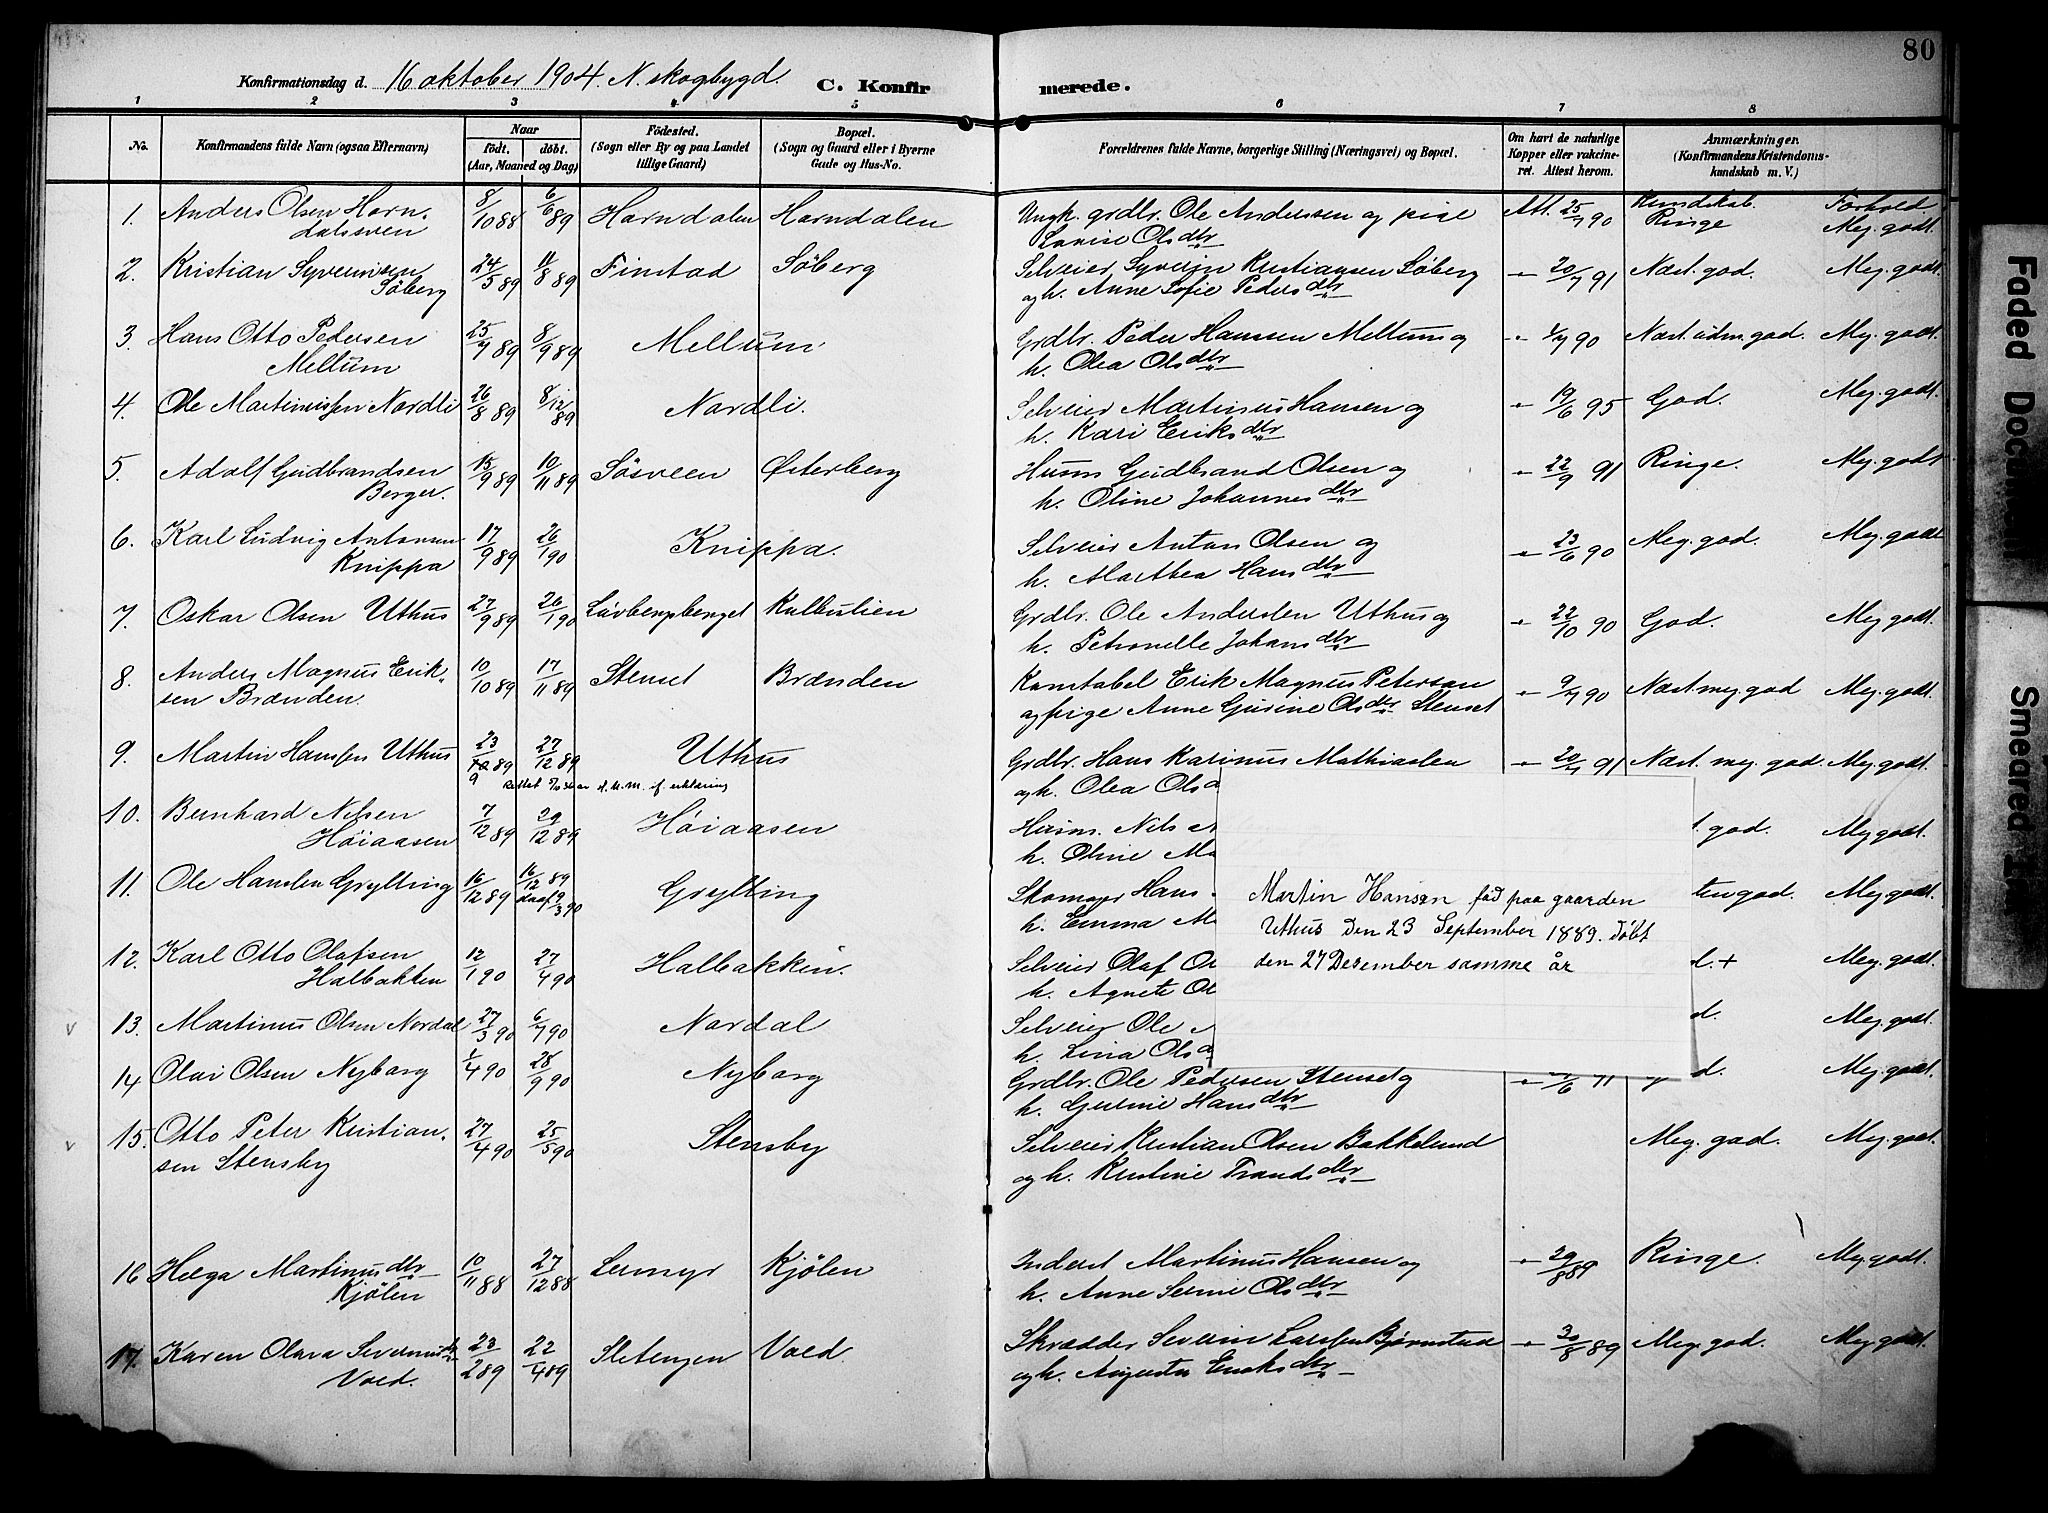 80
Konfirmationsdag d. 16 oktober 1904. N. skogbygd. C. Konfirmerede.
1 2 3 4 5 6 7 8
No. Konfirmandens fulde Navn (ogsaa Efternavn) Naar födt. döbt. (Aar, Maaned og Dag) Födested. (Sogn eller By og paa Landet tillige Gaard) Bopæl. (Sogn og Gaard eller i Byerne Gade og Hus-No. Forældrenes fulde Navne, borgerlige Stilling (Næringsvei) og Bopæl. Om havt de naturlige Kopper eller vakcineret. Attest herom. Anmærkninger. (Konfirmandens Kristendomskundskab m. V.)
Kundskab. Forhold
1. Anders Olsen Horn- 8/10 88 6/6 89 Horndalen Horndalen Ungk. grdbr. Ole Andersen og pige Att. 25/7 90 Ringe Meg. godt.
dalsveen Lovise Olsdtr
2. Kristian Syverinsen 24/5 89 11/8 89 Finstad Söberg Selveier Syverin Kristiansen Söberg " 20/7 91 Næst. god. Meg. godt.
Söberg og h. Anne Sofie Pedersdtr
3. Hans Otto Pedersen 25/7 89 8/9 89 Mellum Grdbr. Peder Hanssen Mellum og " 1/7 90 Næst. udm. god. Meg. godt.
Mellum h. Olea Olsdtr
4. Ole Martinussen Nordli 26/8 89 8/12 89 Nordli. Selveier Martinus Hansen og " 19/6 95 God. Meg. godt.
h. Kari Eriksdtr
5. Adolf Gudbrandsen 15/9 89 10/11 89 Sösveen Østerberg Husm. Gudbrand Olsen og " 22/9 91 Ringe. Meg. godt
Berger. h. Oline Johannesdtr
6. Karl Ludvig Antonsen 17/9 89 26/1 90 Knippa. Selveier Anton Olsen og " 23/6 90 Meg. god. Meg. godt
Knippa h. Marthea Hansdtr
7. Oskar Olsen Uthus 27/9 89 26/1 90 Kulbulien Grdbr. Ole Andersen Uthus og " 22/10 90 God. Meg. godt.
h. Petronelle Johansdtr
8. Anders Magnus Erik- 10/10 89 17/11 89 Stenset Brænden Konstabel Erik Magnus Petersen " 9/7 90 Næst. meg. god Meg. godt.
sen Brænden. og pige Anne Gurine Olsdtr Stenset
9. Martin Hanssen Uthus 23/10 89 27/12 89 Uthus Grdbr. Hans Karinus Mathiassen " 20/7 91 Næst. meg. god. Meg. godt.
9 Rettet af erklæring og h. Olea Ols
10. Bernhard Nilsen 7/12 89 29/12 89 Høiaasen Husm. Nils t. god. Meg. godt.
Høiaasen h. Oline Ma
11. Ole Hansen Grytting 16/12 89 16/12 89 Grytting Skomager Hans ten god. Meg. godt.
h. Emma M
12. Karl Otto Olafsen 12/1 90 27/4 90 Halbakken. Selveier Olaf d. + Meg. godt.
Halbakken h. Agnete
13. Martinus Olsen Nordal 27/3 90 6/7 90 Nordal Selveier Ole d. Meg. godt.
h. Lina Ols
14 Olai Olsen Nyborg 1/4 90 28/9 90 Nyborg Grdbr. Ole Pedersen Stenset og d. Meg. godt.
h. Gurine Hansdtr
15. Otto Peter Kristian- 27/4 90 25/5 90 Stensby Selveier Kristian Olsen Bakkelund Meg. god. Meg. godt.
sen Stensby og h. Kristine Trondsdtr
Martin Hansen fød paa gaarden
Uthus den 23 September 1889. döbt
den 27 Desember samme år
16 Helga Martinusdtr 10/11 88 27/12 88 Lermyr Kjölen Inderst Martinus Hansen og " 29/8 89 Ringe. Meg. godt.
Kjölen h. Anne Olsdtr
17. Karen Olava 23/2 89 22/4 89 Vold. Skrædder Severin Larssen Bjørnstad " 30/8 89 Meg. god. Meg. godt
Vold. og h. Augusta Eriksdtr
Faded Document
Smeared